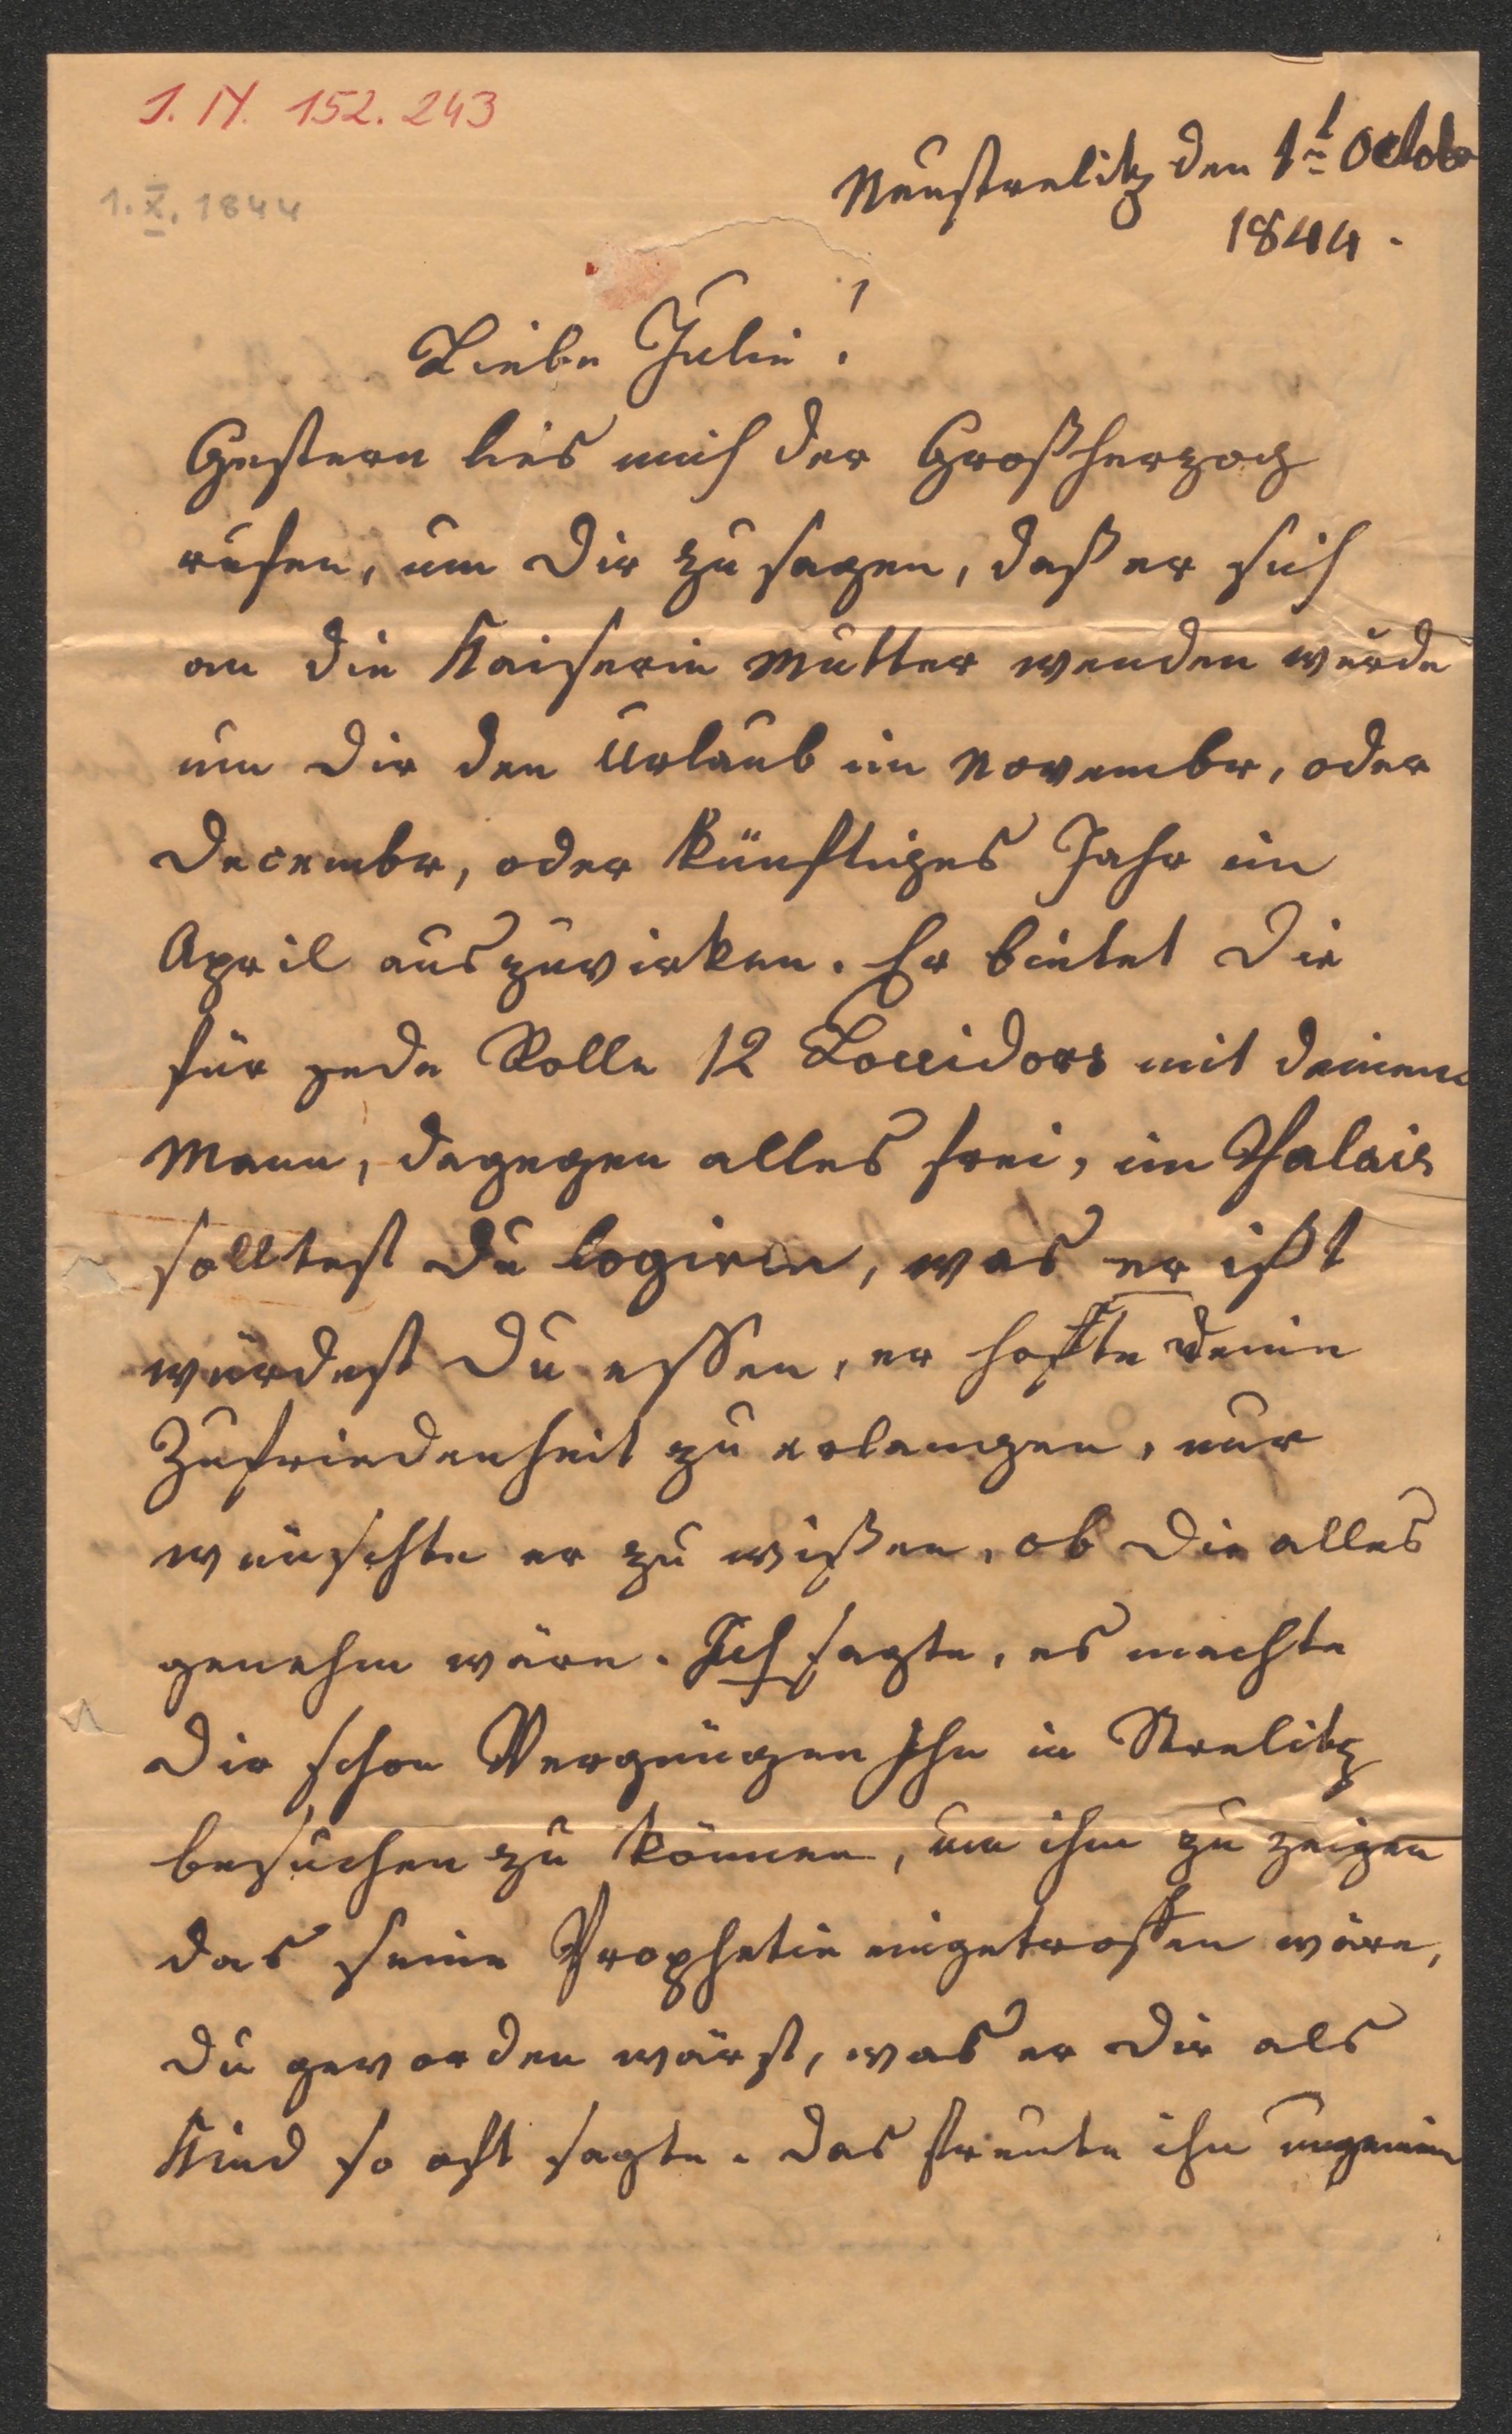 J.N. 152.243
1.X.1844
Neustrelitz den 1t Octobr
1844.
Liebe Julie!
Gestern lies mich der Großherzog
rufen, um Dir zu sagen, daß er sich
an die Kaiserin Mutter wenden würde
um Dir den Urlaub im Novembr, oder
Decembr, oder künftiges Jahr im
April auszuwirken. Er bietet Dir
für jede Rolle 12 Louidors mit deinem
Mann, dagegen alles frei, im Palais
solltest Du logiren, was er ißt
würdest Du essen, er hoffte deine
Zufriedenheit zu erlangen, nur
wünschte er zu wißen, ob Dir alles
genehm wäre. Ich sagte, es machte
Dir schon Vergnügen Ihn in Strelitz
besuchen zu können, um ihm zu zeigen
das seine Prophetie eingetroffen wäre,
Du geworden wärst, was er Dir als
Kind so oft sagte. Das freute ihn ungemein